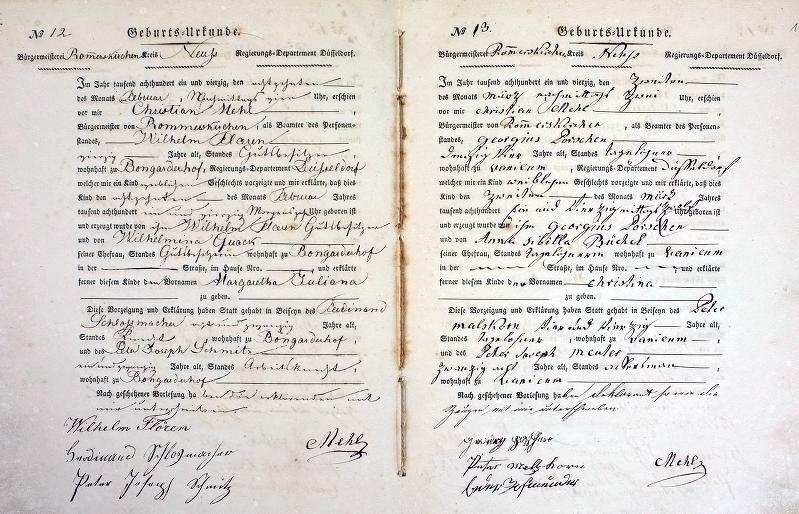 No 12 Geburts-Urkunde.
Bürgermeisterei Rommerskirchen Kreis Neuss Regierungs-Departement Düsseldorf.
Im Jahr tausend achthundert ein und vierzig, den achtzehnten
des Monats Februar, Nachmittags vier Uhr, erschien
vor mir Christian Mehl
Bürgermeister von Rommerskirchen, als Beamter des Personen-
standes, Wilhelm Flaren
vierzig Jahre alt, Standes Gutsbesitzer
wohnhaft zu Bongarderhof, Regierungs-Departement Düsseldorf
welcher mir ein Kind weiblichen Geschlechts vorzeigte und mir erklärte, daß dies
Kind den achtzehnten des Monats Februar Jahres
tausend achthundert ein und vierzig Morgens Uhr geboren ist
und erzeugt wurde von ihm Wilhelm Flaren Gutsbesitzer
und von Wilhelmina Quack
seiner Ehefrau, Standes Gutsbesitzerin wohnhaft zu Bongarderhof
in der Straße, im Hause Nro. und erklärte
ferner diesem Kinde den Vornamen Margaretha Juliana
zu geben.
Diese Vorzeigung und Erklärung haben Statt gehabt in Beiseyn des Ferdinand
Schlossmacher und zwanzig Jahre alt,
Standes Knecht wohnhaft zu Bongarderhof,
und des Peter Joseph Schmitz
ein und zwanzig Jahre alt, Standes Arbeitsknecht,
wohnhaft zu Bongarderhof
Nach geschehener Vorlesung haben die erklärenden mit
mir unterschrieben
Wilhelm Flören
Ferdinand Schlosmacher
Mehl
Peter Joseph Schmitz
No 13. Geburts-Urkunde.
Bürgermeisterei Rommerskirchen Kreis Neuss Regierungs-Departement Düsseldorf.
Im Jahr tausend achthundert ein und vierzig, den Zweiten
des Monats März nachmittags zwei Uhr, erschien
vor mir Christian Mehl
Bürgermeister von Rommerskirchen, als Beamter des Personen-
standes, Georgius Lörschen
dreißig vier Jahre alt, Standes tagelöhner
wohnhaft zu Vanicum, Regierungs-Departement Düsseldorf
welcher mir ein Kind weiblichen Geschlechts vorzeigte und mir erklärte, daß dies
Kind den Zweiten des Monats März Jahres
tausend achthundert ein und vierzig mittags zwölf Uhr geboren ist
und erzeugt wurde von ihm Georgius Lörschen
und von Anna Sibilla Bückel
seiner Ehefrau, Standes tagelöhnerin wohnhaft zu Vanicum
in der Straße, im Hause Nro. und erklärte
ferner diesem Kinde den Vornamen Christina
zu geben.
Diese Vorzeigung und Erklärung haben Statt gehabt in Beiseyn des Peter
vier und vierzig Jahre alt,
Standes tagelöhner, wohnhaft zu Vanicum
und des Peter Joseph
zwanzig acht Jahre alt, Standes Ackersmann
wohnhaft zu Vanicum
Nach geschehener Vorlesung haben Deklarant so wie die
Zeugen mit mir unterschrieben.
Mehl